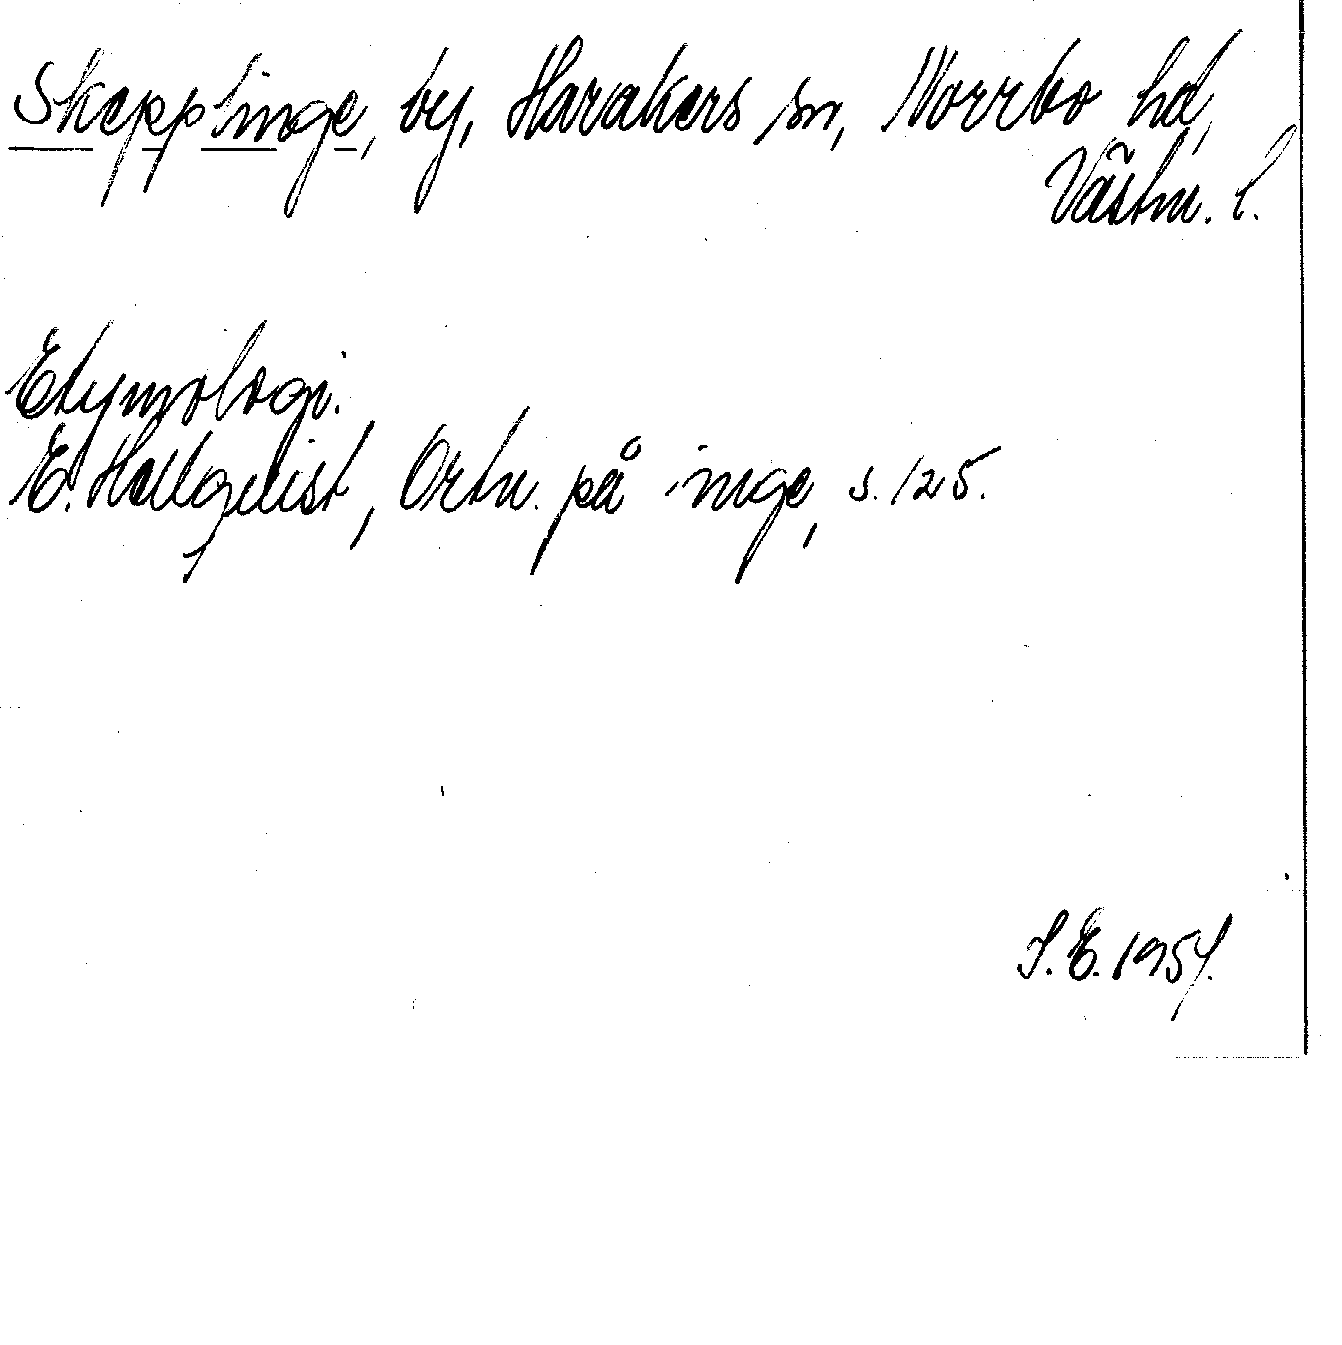 Skepplinge, by, Harakers sn, Norrbo hd,
Västm. l.
Etymologi.
E. Hellquist, Ortn. på inge, s. 125.
S. E. 1954.